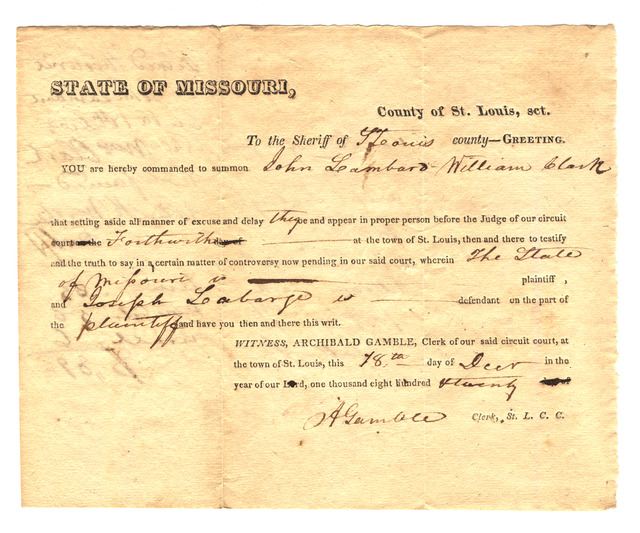 STATE OF MISSOURI,
County of St. Louis, sct.
To the Sheriff of St Louis county—GREETING.
YOU are hereby commanded to summon John Lambard William Clark
that setting aside all manner of excuse and delay they be and appear in proper person before the Judge of our circuit
court on the Forthwith day of at the town of St. Louis, then and there to testify
and the truth to say in a certain matter of controversy now pending in our said court, wherein The State
of Missouri is plaintiff,
and Joseph Labarge is defendant on the part of
the plaintiff and have you then and there this writ.
WITNESS, ARCHIBALD GAMBLE, Clerk of our said circuit court, at
the town of St. Louis, this 18th day of Decr in the
year of our Lord, one thousand eight hundred & twenty
A Gamble Clerk, St. L. C. C.